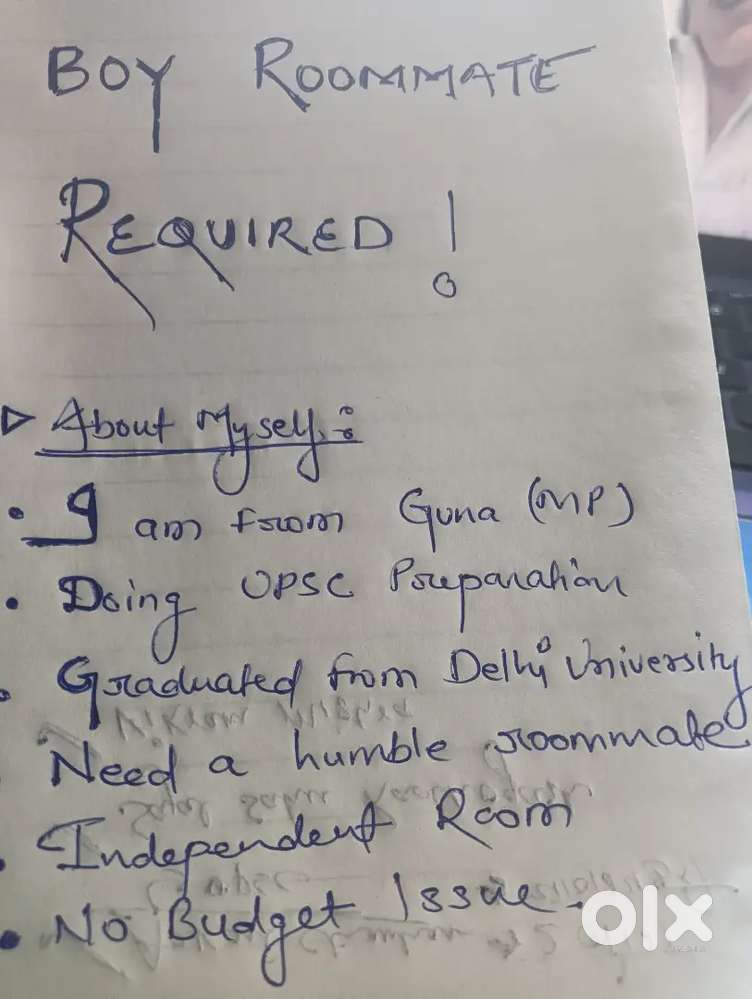 BOY ROOMMATE
REQUIRED!
▷ About Myself :-
• I am from Guna (MP)
• Doing UPSC Preparation
• Graduated from Delhi University
• Need a humble roommate
• Independent Room
• No Budget Issue.
olx